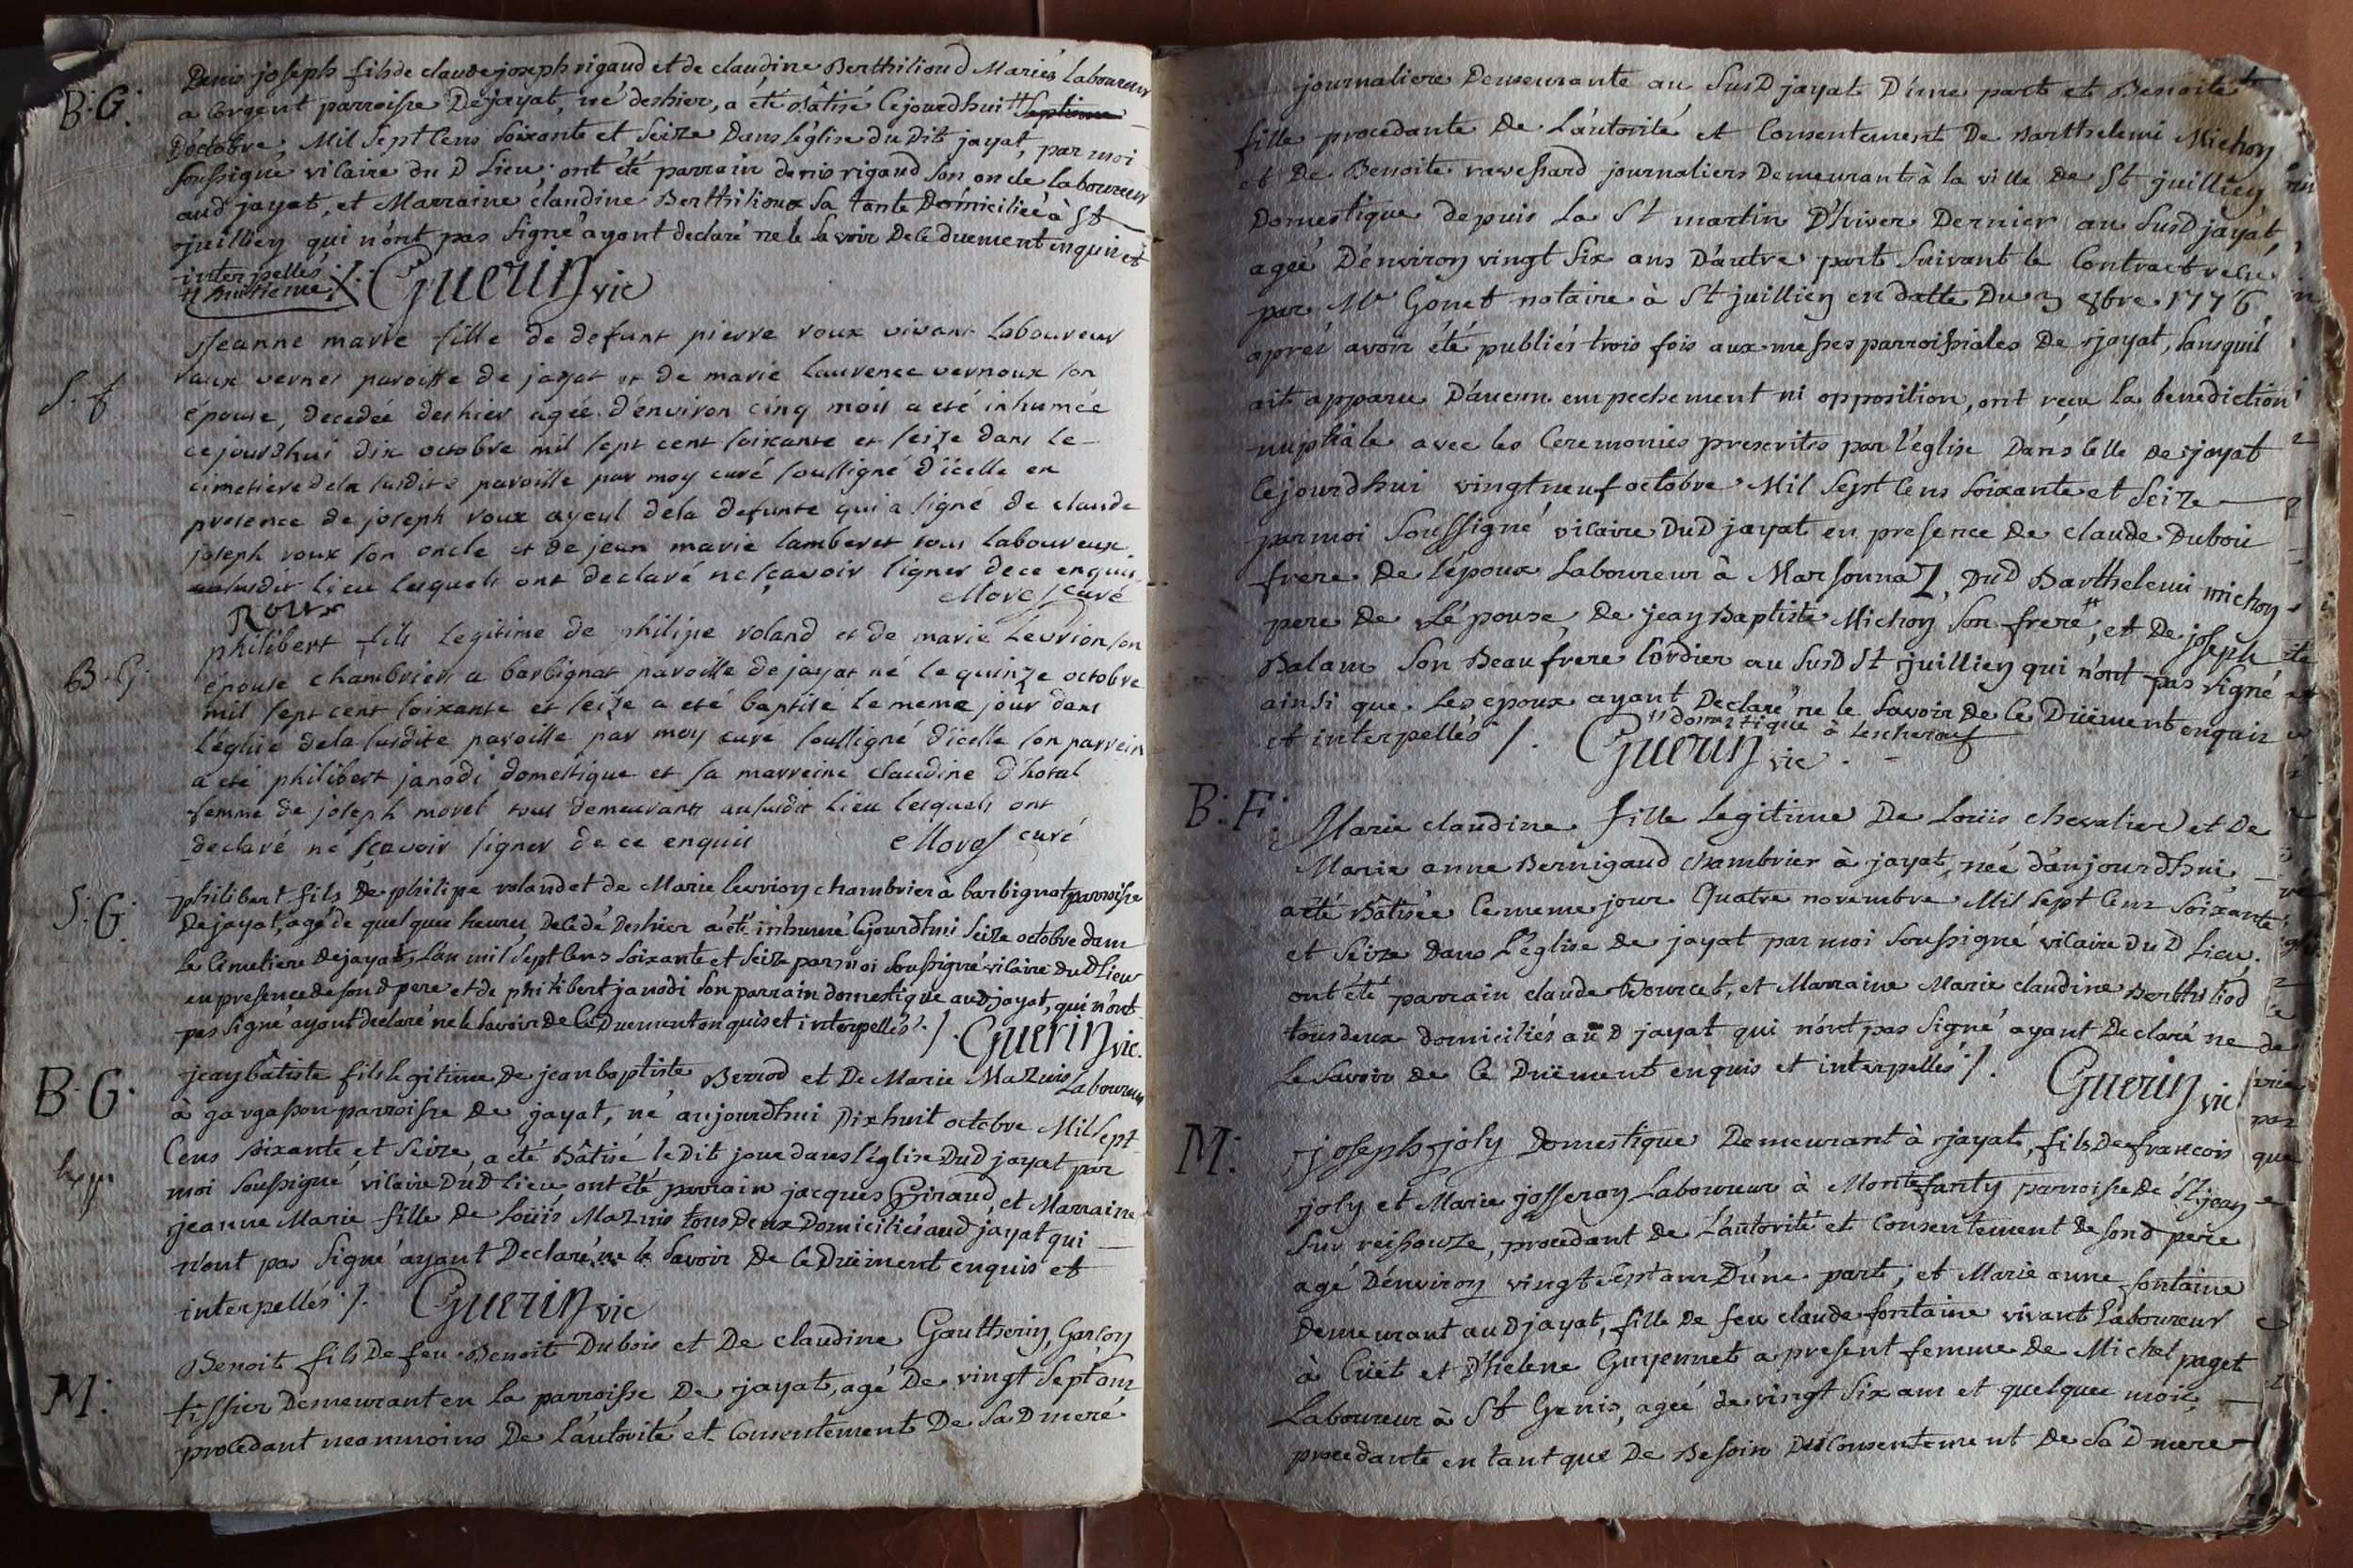 B: G:
Denis joseph fils de claude joseph rigaud et de claudine Berthilioud Mariés Laboureur
a Corgent parroisse De jayat, né deshier, a été bâtisé Cejourdhui # Septieme
D'octobre, Mil Sept Cens Soixante et Seize Dans l'église du Dit jayat, par moi
soussigné vicaire du D Lieu; ont été parrain denis rigaud son oncle laboureur
aud jayat, et Marraine claudine Berthilioux Sa tante Domiciliée à St
juillien qui n'ont pas Signé ayant declaré ne le Savoir De Ce duement enquis et
interpellés ./. Guerin vic
# huitieme
S. f.
Jeanne marie fille de defunt pierre roux vivant laboureur
aux vernes paroisse de jayat et de marie laurence vernoux son
épouse, decedée deshier agée d'environ cinq mois a eté inhumée
cejourdhui dix octobre mil sept cent soixante et seize dans le
cimetiere dela susdite paroisse par moy curé soussigné d'icelle en
presence de joseph roux ayeul dela defunte qui a signé de claude
joseph roux son oncle et de jean marie lamberet tous laboureux
aususdit lieu lesquels ont declaré ne sçavoir signer de ce enquis
Roux Morel curé
B. G.
philibert fils legitime de philipe roland et de marie levrion son
épouse chambrier a barbignat paroisse de jayat né le quinze octobre
mil sept cent soixante et seize a eté baptisé le meme jour dans
l'église dela susdite paroisse par moy curé soussigné d'icelle son parrein
a eté philibert janodi domestique et sa marreine claudine d'hotal
femme de joseph morel tous demeurants aususdit lieu lesquels ont
declaré ne sçavoir signer de ce enquis Morel curé
S: G:
philibert fils De philipe roland et de Marie levrion chambrier à barbignat parroisse
De jayat, agé de quelques heures, Decedé Deshier a été inhumé Cejourdhui Seize octobre dans
le Cimetiere De jayat, L'an mil Sept Cens Soixante et Seize par moi Soussigné vicaire Du D Lieu
en presence de son D pere et de philibert janodi Son parrain domestique aud jayat, qui n'ont
pas Signé ayant declaré ne le Savoir de Ce Duement enquis et interpellés ./. Guerin vic.
B: G:
jean bâtiste fils legitime De jean baptiste Berrod et De Marie Mazuis Laboureur
à gargasson parroisse De jayat, né aujourdhui Dixhuit octobre Mil Sept
Cens Soixante et Seize, a été Bâtisé le Dit jour dans l'église Du D jayat par
moi Soussigné vicaire Du D Lieu, ont été parrain jacques Giraud, et Marraine
jeanne Marie fille De Loüis Mazuis tous Deux Domiciliés aud jayat qui
n'ont pas Signé ayant Declaré ne le Savoir De Ce Düement enquis et
interpellés ./. Guerin vic
M:
Benoit fils De feu Benoit Dubois et De claudine Gautherin, Garçon
tissier Demeurant en la parroisse De jayat, agé De vingt Sept ans
procedant neanmoins De L'autorité et Consentement De Sa D mere
journaliere Demeurante au SusD jayat D'une part et Benoite
fille procedante De L'autorité et Consentement De Barthelemi Michon
et De Benoite ravessard journaliers Demeurants à la ville De St juillien
Domestique depuis La St martin D'hiver Dernier au SusD jayat,
agée D'environ vingt Six ans D'autre part Suivant le Contract recu
par Mr Gonet notaire à St juillien en datte Du 3 8bre 1776,
aprés avoir été publiés trois fois aux messes parroissiales De jayat, Sans quil
ait apparu D'aucun empechement ni opposition, ont recu La benediction
nuptiale avec les Ceremonies prescrites par l'église Dans Celle De jayat
Cejourdhui vingt neuf octobre Mil Sept Cens Soixante et Seize
par moi Soussigné vicaire Du D jayat en presence De claude Dubois
frere De l'époux Laboureur à Marsonnaz, Du D Barthelemi michon
pere De L'épouse, De jean Baptiste Michon Son frere #, et De joseph
Balam Son Beau frere Cordier au SusD St juillien qui n'ont pas signé
ainsi que Les epoux ayant Declaré ne le Savoir De Ce Düement enquis
et interpellés ./. Guerin vic.
# domestique à Lescheroux
B: F:
Marie claudine fille Legitime De Loüis chevalier et De
Marie anne Bernigaud chambrier à jayat, née d'aujourdhui
a été Bâtisée le meme jour Quatre novembre Mil Sept Cens Soixante
et Seize Dans L'église De jayat par moi Soussigné vicaire Du D Lieu,
ont été parrain claude Bourcet, et Marraine Marie claudine Berthiliod
tous deux domiciliés au D jayat qui n'ont pas Signé ayant Declaré ne
le Savoir De Ce Düement enquis et interpellés ./. Guerin vic
M:
joseph joly Domestique Demeurant à jayat, fils De francois
joly et Marie josseran Laboureur à Montefanty parroisse De St jean
Sur reissouze, procedant De L'autorité et Consentement De son D pere
agé D'environ vingt Sept ans D'une part; et Marie anne fontaine
Demeurant au D jayat, fille De feu claude fontaine vivant Laboureur
à Cuet et D'helene Guyennet a present femme De Michel paget
Laboureur à St Genis, agée de vingt Six ans et quelques mois
procedante en tant que De Besoin Du Consentement De Sa D mere